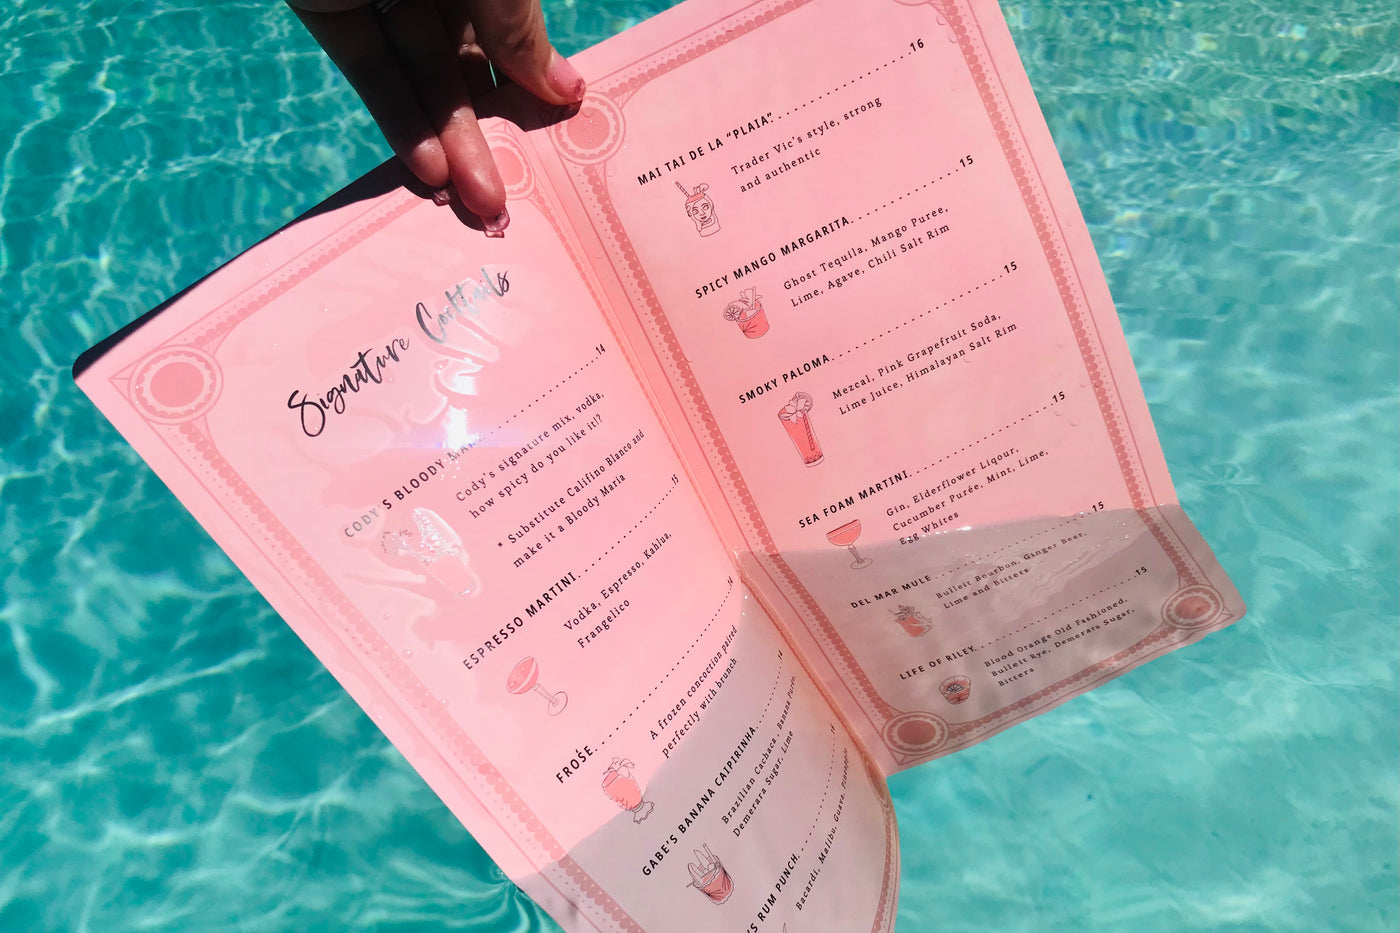 Signature Cocktails
CODY'S BLOODY MARY 14
Cody's signature mix, vodka,
how spicy do you like it!?
* Substitute Califino Blanco and
make it a Bloody Maria
ESPRESSO MARTINI 15
Vodka, Espresso, Kahlua,
Frangelico
FROŚE 14
A frozen concoction paired
perfectly with brunch
GABE'S BANANA CAIPIRINHA 14
Brazilian Cachaca, Banana Puree,
Demerara Sugar, Lime
RUM PUNCH 14
Bacardi, Malibu, Guava,
MAI TAI DE LA "PLAIA" 16
Trader Vic's style, strong
and authentic
SPICY MANGO MARGARITA 15
Ghost Tequila, Mango Puree,
Lime, Agave, Chili Salt Rim
SMOKY PALOMA 15
Mezcal, Pink Grapefruit Soda,
Lime Juice, Himalayan Salt Rim
SEA FOAM MARTINI 15
Gin, Elderflower Liqour,
Cucumber Purée, Mint, Lime,
Egg Whites
DEL MAR MULE 15
Bulleit Bourbon, Ginger Beer,
Lime and Bitters
LIFE OF RILEY 15
Blood Orange Old Fashioned,
Bulleit Rye, Demerara Sugar,
Bitters